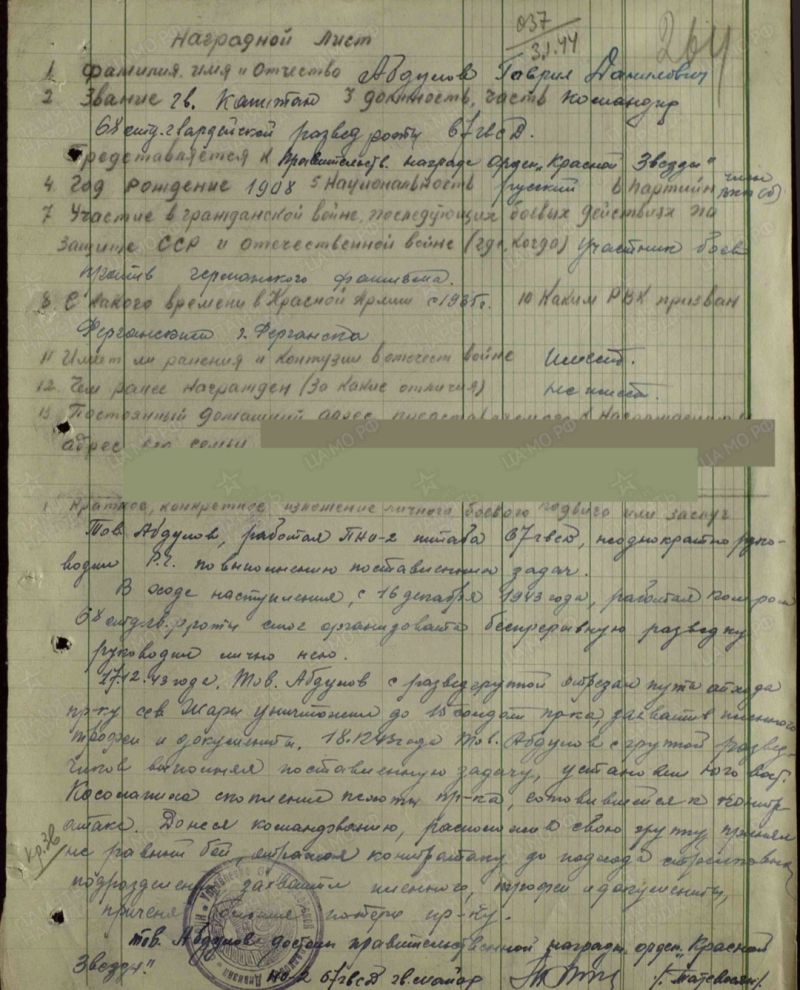 037
31.44
264
Наградной лист
1 Фамилия, имя и отчество Абдулов Гаврил Данилович
2 Звание гв. Капитан 3 должность, часть командир
68 отд. гвардейской развед роты 67 гвсд.
Представляется к правительств. награде орден „Красной Звезды"
4 Год рождение 1908 5 Национальность русский 6 партийн член ВКП(б)
7 Участие в гражданской войне, последующих боевых действиях по
защите СССР и отечественной войне (где, когда) участник боев
против германского фашизма.
8 С какого времени в Красной Армии с 1935г. 10 Каким РВК призван
Ферганский г. Фергана
11 Имеет ли ранения и контузии в отечест войне имеет.
12. Чем ранее награжден (за какие отличия) не имеет.
13 Постоянный домашний адрес представляемого к награждению и
адрес его семьи
Краткое, конкретное изложение личного боевого подвига или заслуг
Тов. Абдулов, работая ПНО-2 штаба 67 гвсд, неоднократно руко-
водил Р.Г. по выполнению поставленных задач.
В ходе наступления, с 16 декабря 1943 года, работая ком роты
68 отд. гв. р/роты смог организовать беспрерывную разведку
руководил лично ею.
17.12.43 года, Тов. Абдулов с разведгруппой отрезал пути отхода
пр-ку сев Жары уничтожил до 15 солдат пр-ка, захватив пленного
трофеи и документы. 18.12.43 года Тов. Абдулов с группой развед-
чиков выполняя поставленную задачу, установил юго вост.
скопление пехоты пр-ка, готовившегося к контр-
атаке. Донеся командованию, расположив свою группу принял
не равный бой, отражая контратаку до подхода стрелковых
подразделений захватил пленного, трофеи и документы,
причиня большие потери пр-ку.
Тов. Абдулов достоин правительственной награды орден „Красной
Звезды".
НО-2 67 гвсд гв. майор /Татевосян/